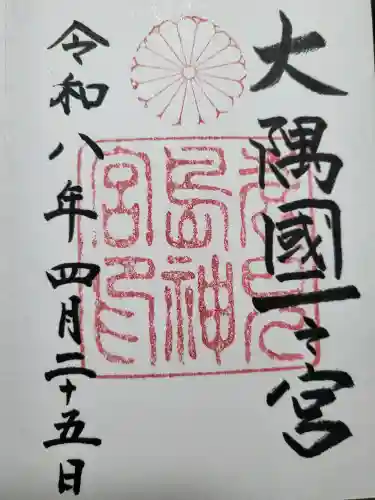 大隅國一之宮
鹿兒島神宮印
令和八年四月二十五日